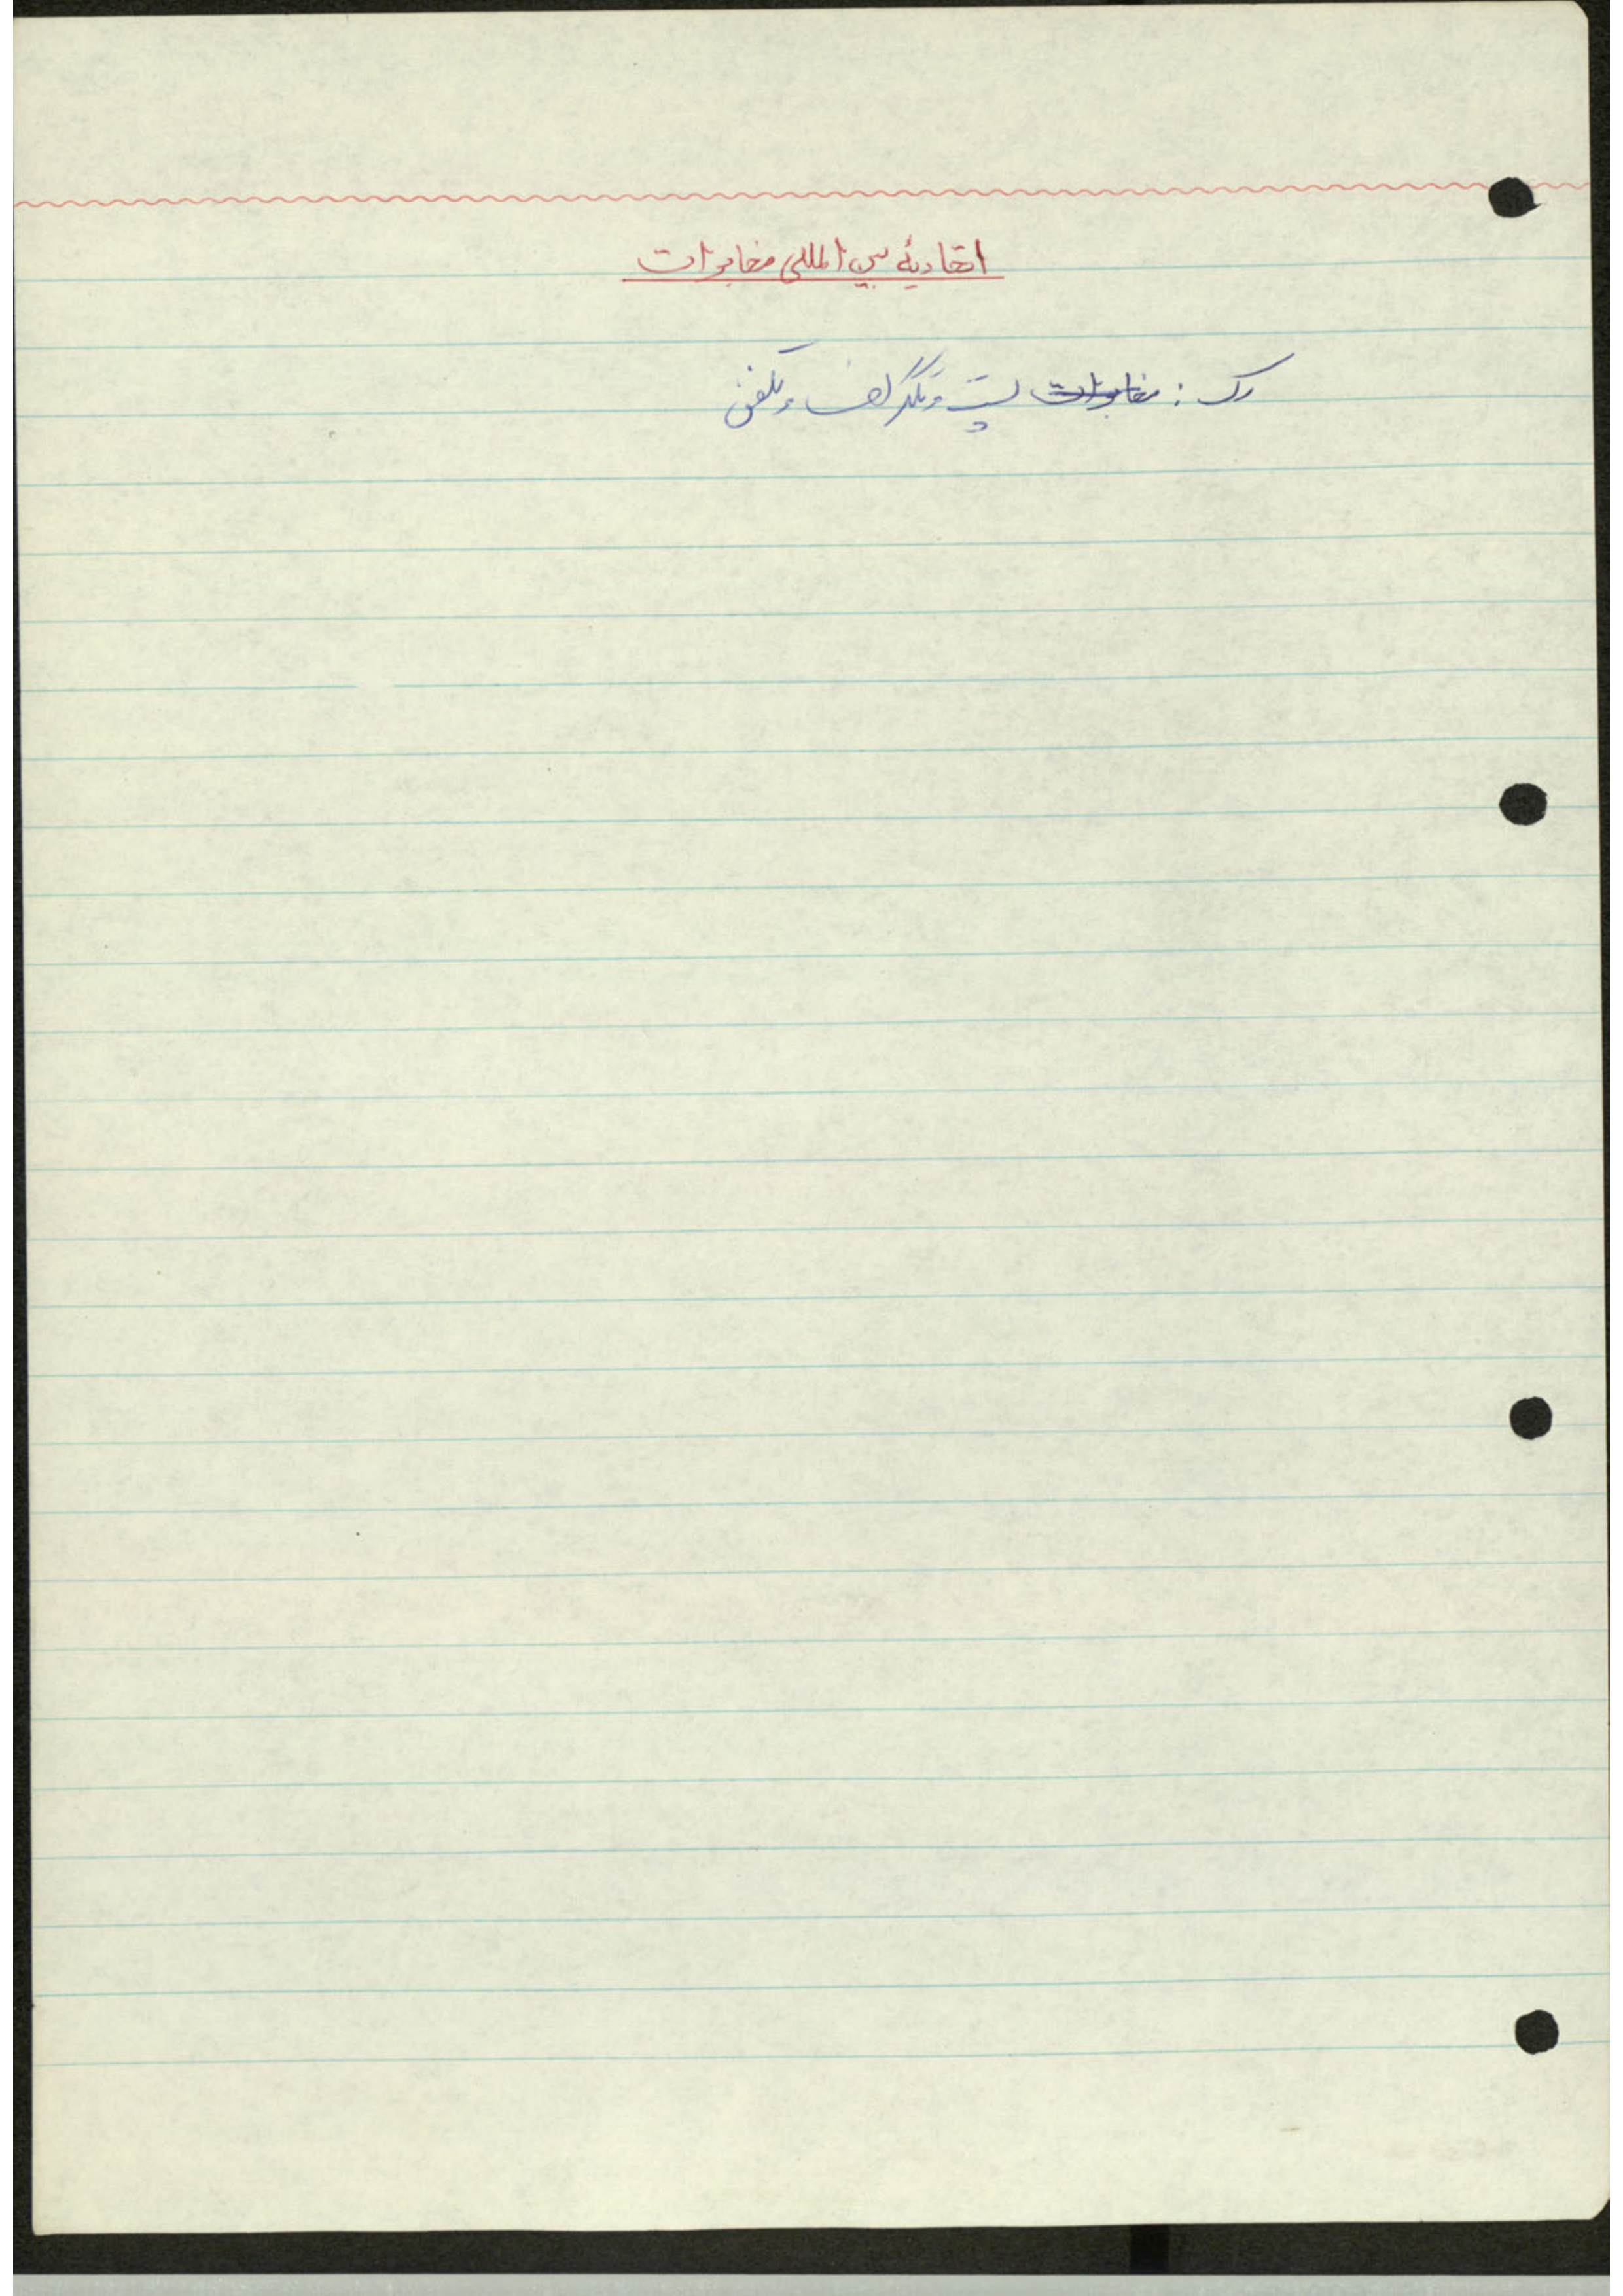 اتحادیهٔ بین المللی مخابرات
رک : مخابرات پست و تلگراف و تلفن